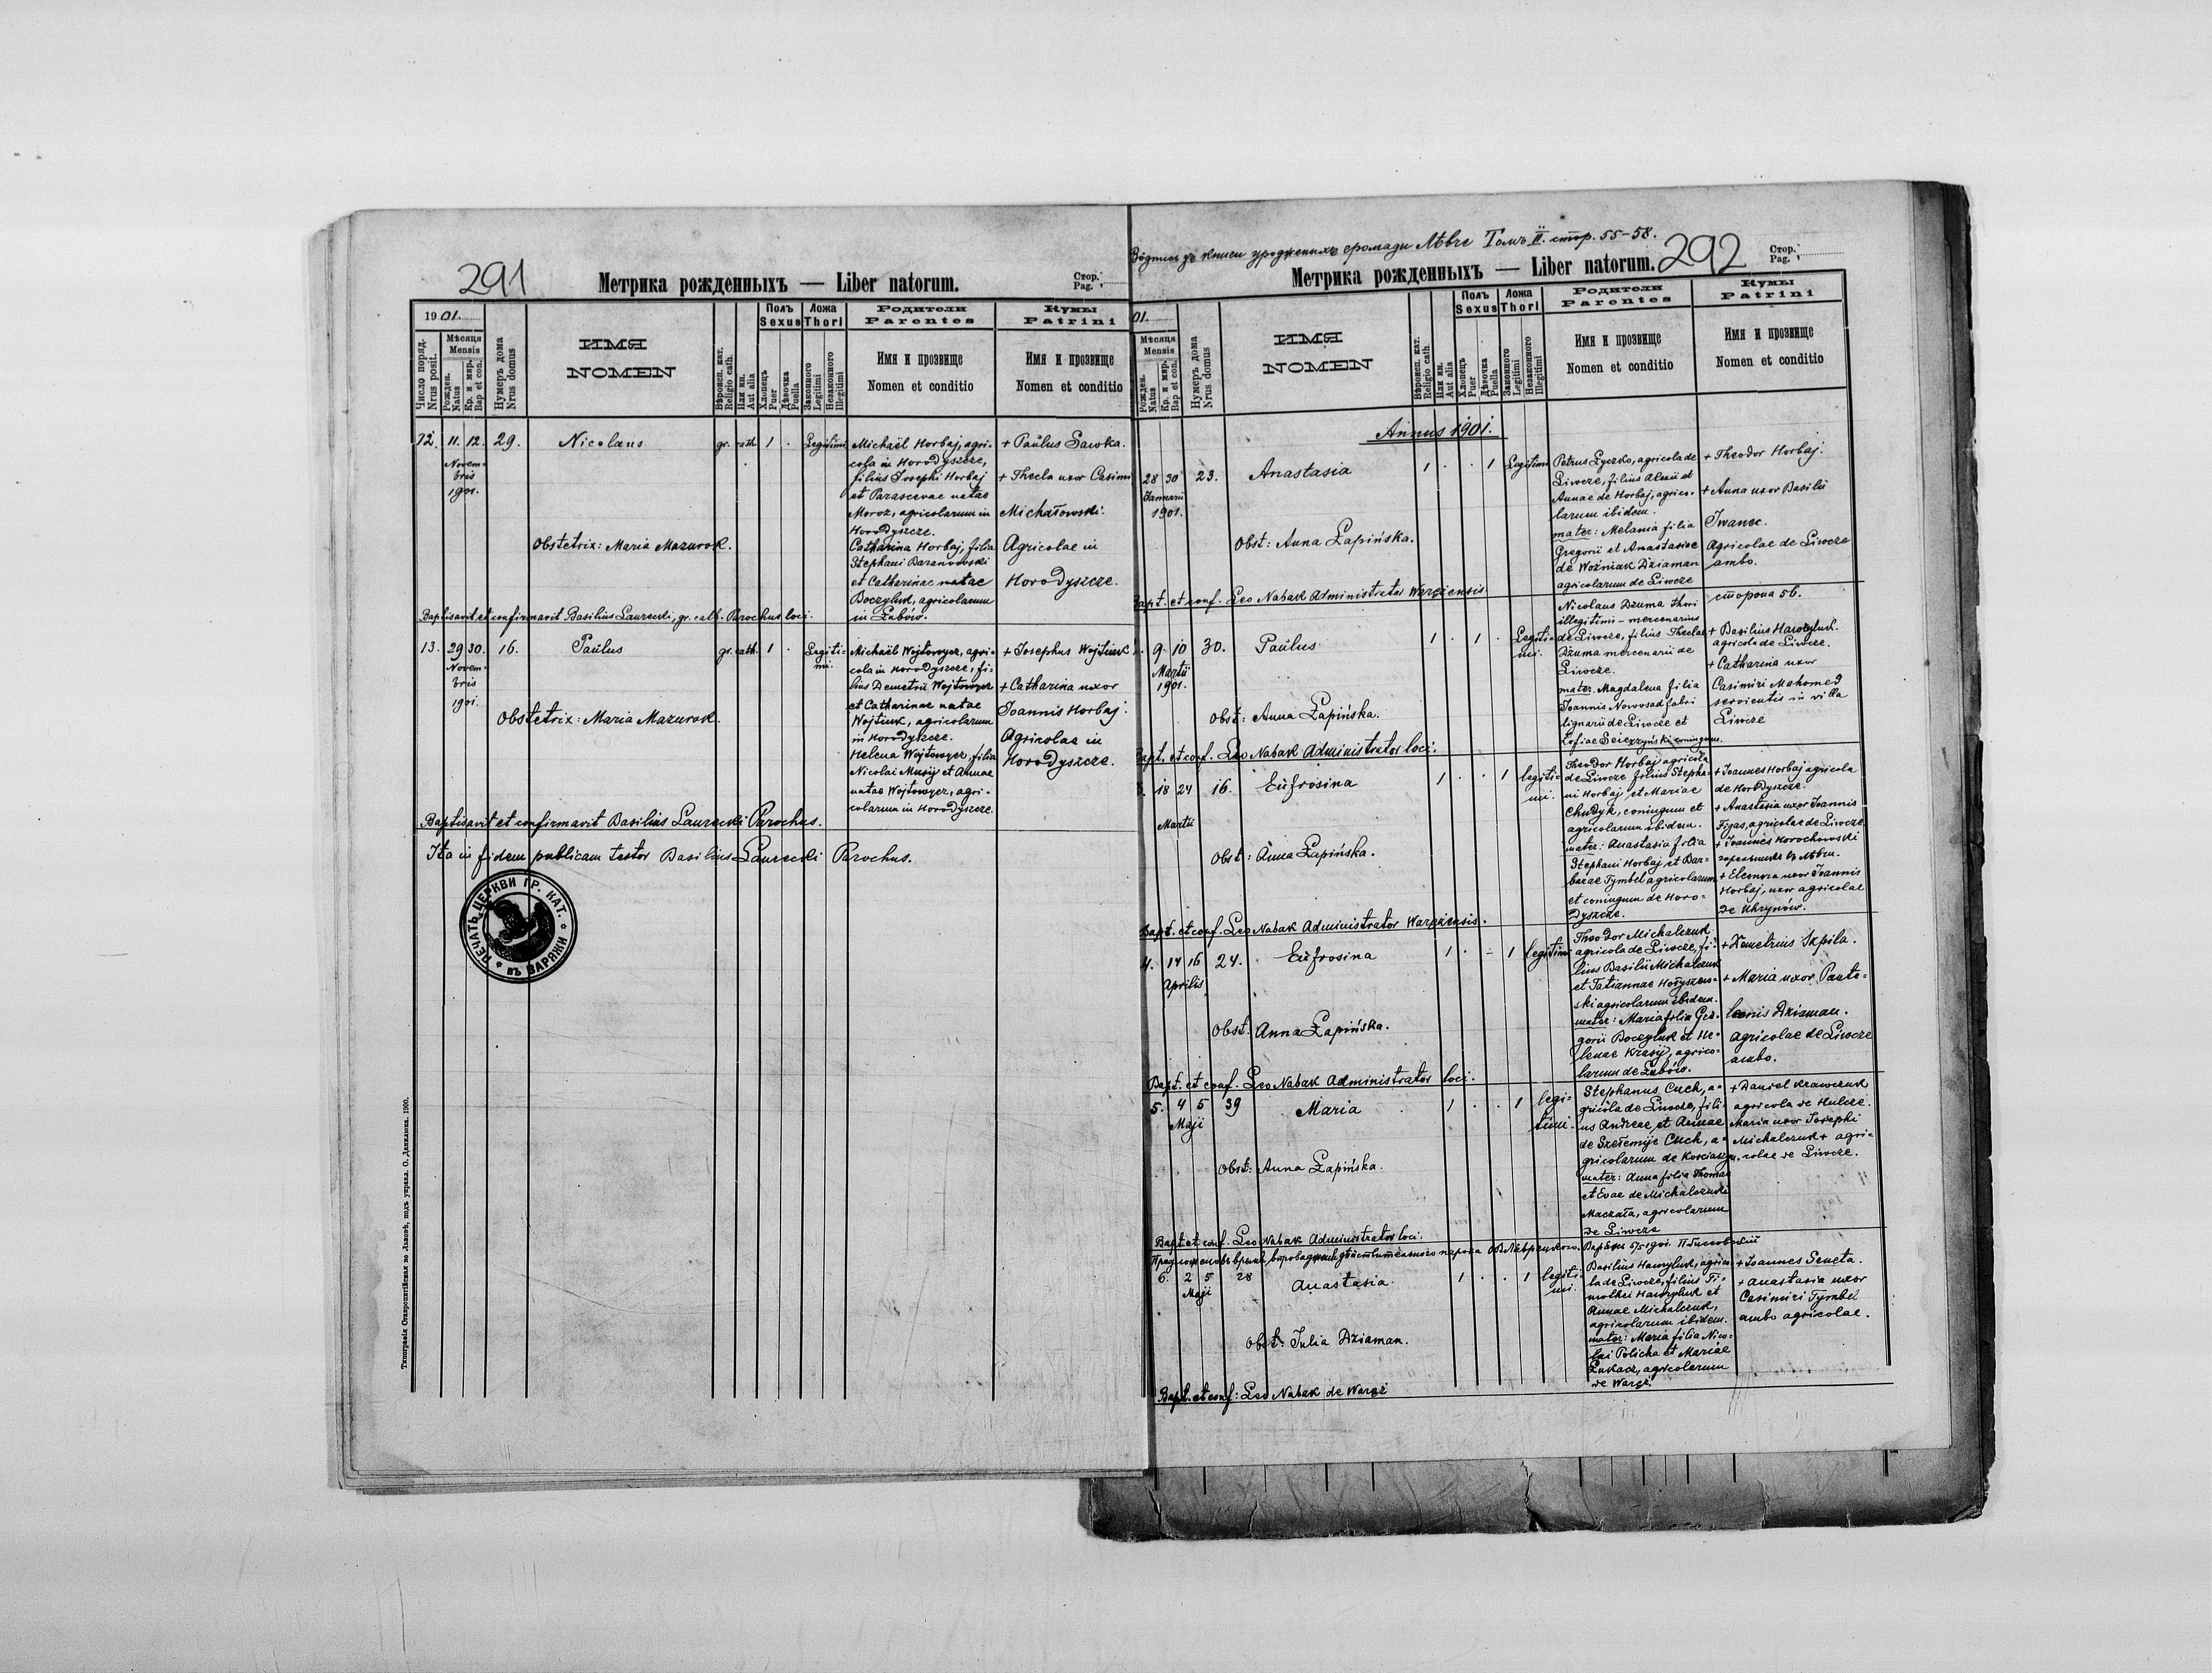 291
Метрика рожденныхъ — Liber natorum.
Стор.
Pag.
1901.
Число поряд.
Nrus posit.
Мѣсяця
Mensis
Рожден.
Natus
Кр. и мир.
Bap et con.
Нумеръ дома
Nrus domus
ИМЯ
NOMEN
Вѣроисп. кат.
Religio cath.
Или ин.
Aut alia
Полъ
Sexus
Хлопець
Puer
Дѣвочка
Puella
Ложа
Thori
Законного
Legitimi
Незаконного
Illegitimi
Родители
Parentes
Имя и прозвище
Nomen et conditio
Кумы
Patrini
Имя и прозвище
Nomen et conditio
12. 11. 12. 29. Nicolaus gr. cath. 1 . Legitimi
Novem-
bris
1901.
Obstetrix: Maria Mazurok.
Michaël Horbaj, agri-
cola in Horodyszcze,
filius Josephi Horbaj
et Parascevae natae
Moroz, agricolarum in
Horodyszcze.
Catharina Horbaj, filia
Stephani Baranowski
et Catharinae natae
Boczyluk, agricolarum
in Łubów.
+ Paulus Sawka.
+ Thecla uxor Casimi
Michałowski.
Agricolae in
Horodyszcze.
Baptisavit et confirmavit Basilius Laurecki, gr. cath. Parochus loci.
13. 29 30. 16. Paulus gr. cath. 1 . Legiti-
mi.
Novem-
bris
1901.
Obstetrix: Maria Mazurok.
Michaël Wojtowycz, agri-
cola in Horodyszcze, fi-
lius Demetrii Wojtowycz
et Catharinae natae
Wojtiuk, agricolarum
in Horodyszcze.
Helena Wojtowycz, filia
Nicolai Musij et Annae
natae Wojtowycz, agri-
colarum in Horodyszcze.
+ Josephus Wojtiuk
+ Catharina uxor
Joannis Horbaj.
Agricolae in
Horodyszcze.
Baptisavit et confirmavit Basilius Laurecki Parochus.
Ita in fidem publicam testor Basilius Laurecki Parochus.
ПЕЧАТЬ ЦЕРКВИ ГР. КАТ.
въ ВАРЯЖИ
Типографія Ставропигійская во Львовѣ, подъ управл. О. Данилюка. 1900.
Вôдпись зъ книги уродженныхъ громады Лѣвче Томъ II. стор. 55-58.
292
Метрика рожденныхъ — Liber natorum.
Стор.
Pag.
01.
Мѣсяця
Mensis
Рожден.
Natus
Кр. и мир.
Bap et con.
Нумеръ дома
Nrus domus
ИМЯ
NOMEN
Вѣроисп. кат.
Religio cath.
Или ин.
Aut alia
Полъ
Sexus
Хлопець
Puer
Дѣвочка
Puella
Ложа
Thori
Законного
Legitimi
Незаконного
Illegitimi
Родители
Parentes
Имя и прозвище
Nomen et conditio
Кумы
Patrini
Имя и прозвище
Nomen et conditio
Annus 1901.
28 30 23. Anastasia 1 . . 1 Legitimi
Januarii
1901.
Obst: Anna Łapińska.
Petrus Łyczko, agricola de
Liwcze, filius Alexii et
Annae de Horbaj, agrico-
larum ibidem.
mater: Melania filia
Gregorii et Anastasiae
de Woźniak Dziaman
agricolarum de Liwcze
+ Theodor Horbaj.
+ Anna uxor Basilii
Iwanec.
Agricolae de Liwcze
ambo.
Bapt. et conf. Leo Nabak Administrator Waręzensis.
сторона 56.
9 10 30. Paulus 1 . 1 . Legiti-
mi.
Martii
1901.
Obst: Anna Łapińska.
Nicolaus Dzuma thori
illegitimi - mercenarius
de Liwcze, filius Theclae
Dzuma mercenarii de
Liwcze.
mater: Magdalena filia
Joannis Nowosad fabri
lignarii de Liwcze et
Zofiae Sciezzyński coniugum.
+ Basilius Hawryluk.
agricola de Liwcze.
+ Catharina uxor
Casimiri Mahomed
servientis in villa
Liwcze
Bapt. et conf. Leo Nabak Administrator loci.
3. 18 24 16. Eufrosina 1 . . 1 legiti-
mi.
Martii
Obst: Anna Łapińska.
Theodor Horbaj agricola
de Liwcze filius Stepha-
ni Horbaj et Mariae
Chudyk, coniugum et
agricolarum ibidem.
mater: Anastasia filia
Stephani Horbaj et Bar-
barae Tymbel agricolarum
et coniugum de Horo-
dyszcze.
+ Joannes Horbaj agricola
de Horodyszcze.
+ Anastasia uxor Joannis
Figas, agricolae de Liwcze
+ Joannes Horochowski
+ Eleonora uxor Joannis
Horbaj, uxor agricolae
de Uhrynów.
Bapt. et conf. Leo Nabak Administrator Waręzensis.
4. 14 16 24. Eufrosina 1 . - 1 legitimi
Aprilis
Obst: Anna Łapińska.
Theodor Michalczuk
agricola de Liwcze, fi-
lius Basilii Michalczuk
et Tatiannae Hołyszew-
ski agricolarum ibidem.
mater: Maria filia Gre-
gorii Boczyluk et He-
lenae Krasij, agrico-
larum de Łubów.
+ Demetrius Skpila.
+ Maria uxor Pante-
leonis Dziaman.
agricolae de Liwcze
ambo.
Bapt. et conf. Leo Nabak Administrator loci.
5. 4 5 39 Maria 1 . . 1 legi-
timi.
Maji
Obst: Anna Łapińska.
Stephanus Cuch, a-
gricola de Liwcze, fili-
us Andreae et Annae
de Szełemije Cuch, a-
gricolarum de Kosciaszyn.
mater: Anna filia Thomae
et Evae de Michalczuk
Maczała, agricolarum
de Liwcze
+ Daniel Krawczuk
agricola de Hulcze.
Maria uxor Josephi
Michalczuk + agri-
colae de Liwcze.
Bapt. et conf. Leo Nabak Administrator loci.
6. 2 5 28 Anastasia 1 . . 1 legiti-
mi.
Maji
Obst: Julia Dziaman.
Basilius Hawryluk, agrico-
la de Liwcze, filius Ti-
mothei Hawryluk et
Annae Michalczuk,
agricolarum ibidem.
mater: Maria filia Nico-
lai Policha et Mariae
Łukacz, agricolarum
de Waręż.
+ Joannes Seneta.
+ Anastasia uxor
Casimiri Tymbel
ambo agricolae.
Bapt. et conf: Leo Nabak de Waręż